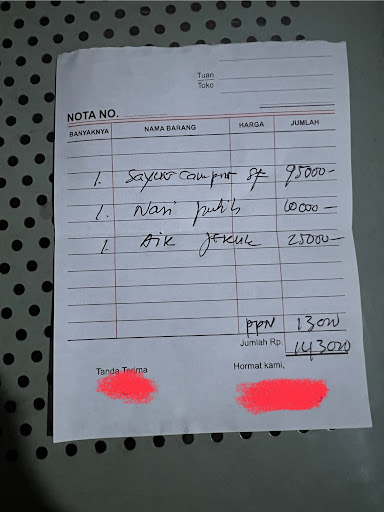 Tuan
Toko
NOTA NO.
BANYAKNYA NAMA BARANG HARGA JUMLAH
1. Sayur campur sf 95000-
1. Nasi putih 10000-
1. Aik jeruk 25000-
PPN 13000
Jumlah Rp. 143000
Tanda Terima Hormat kami,